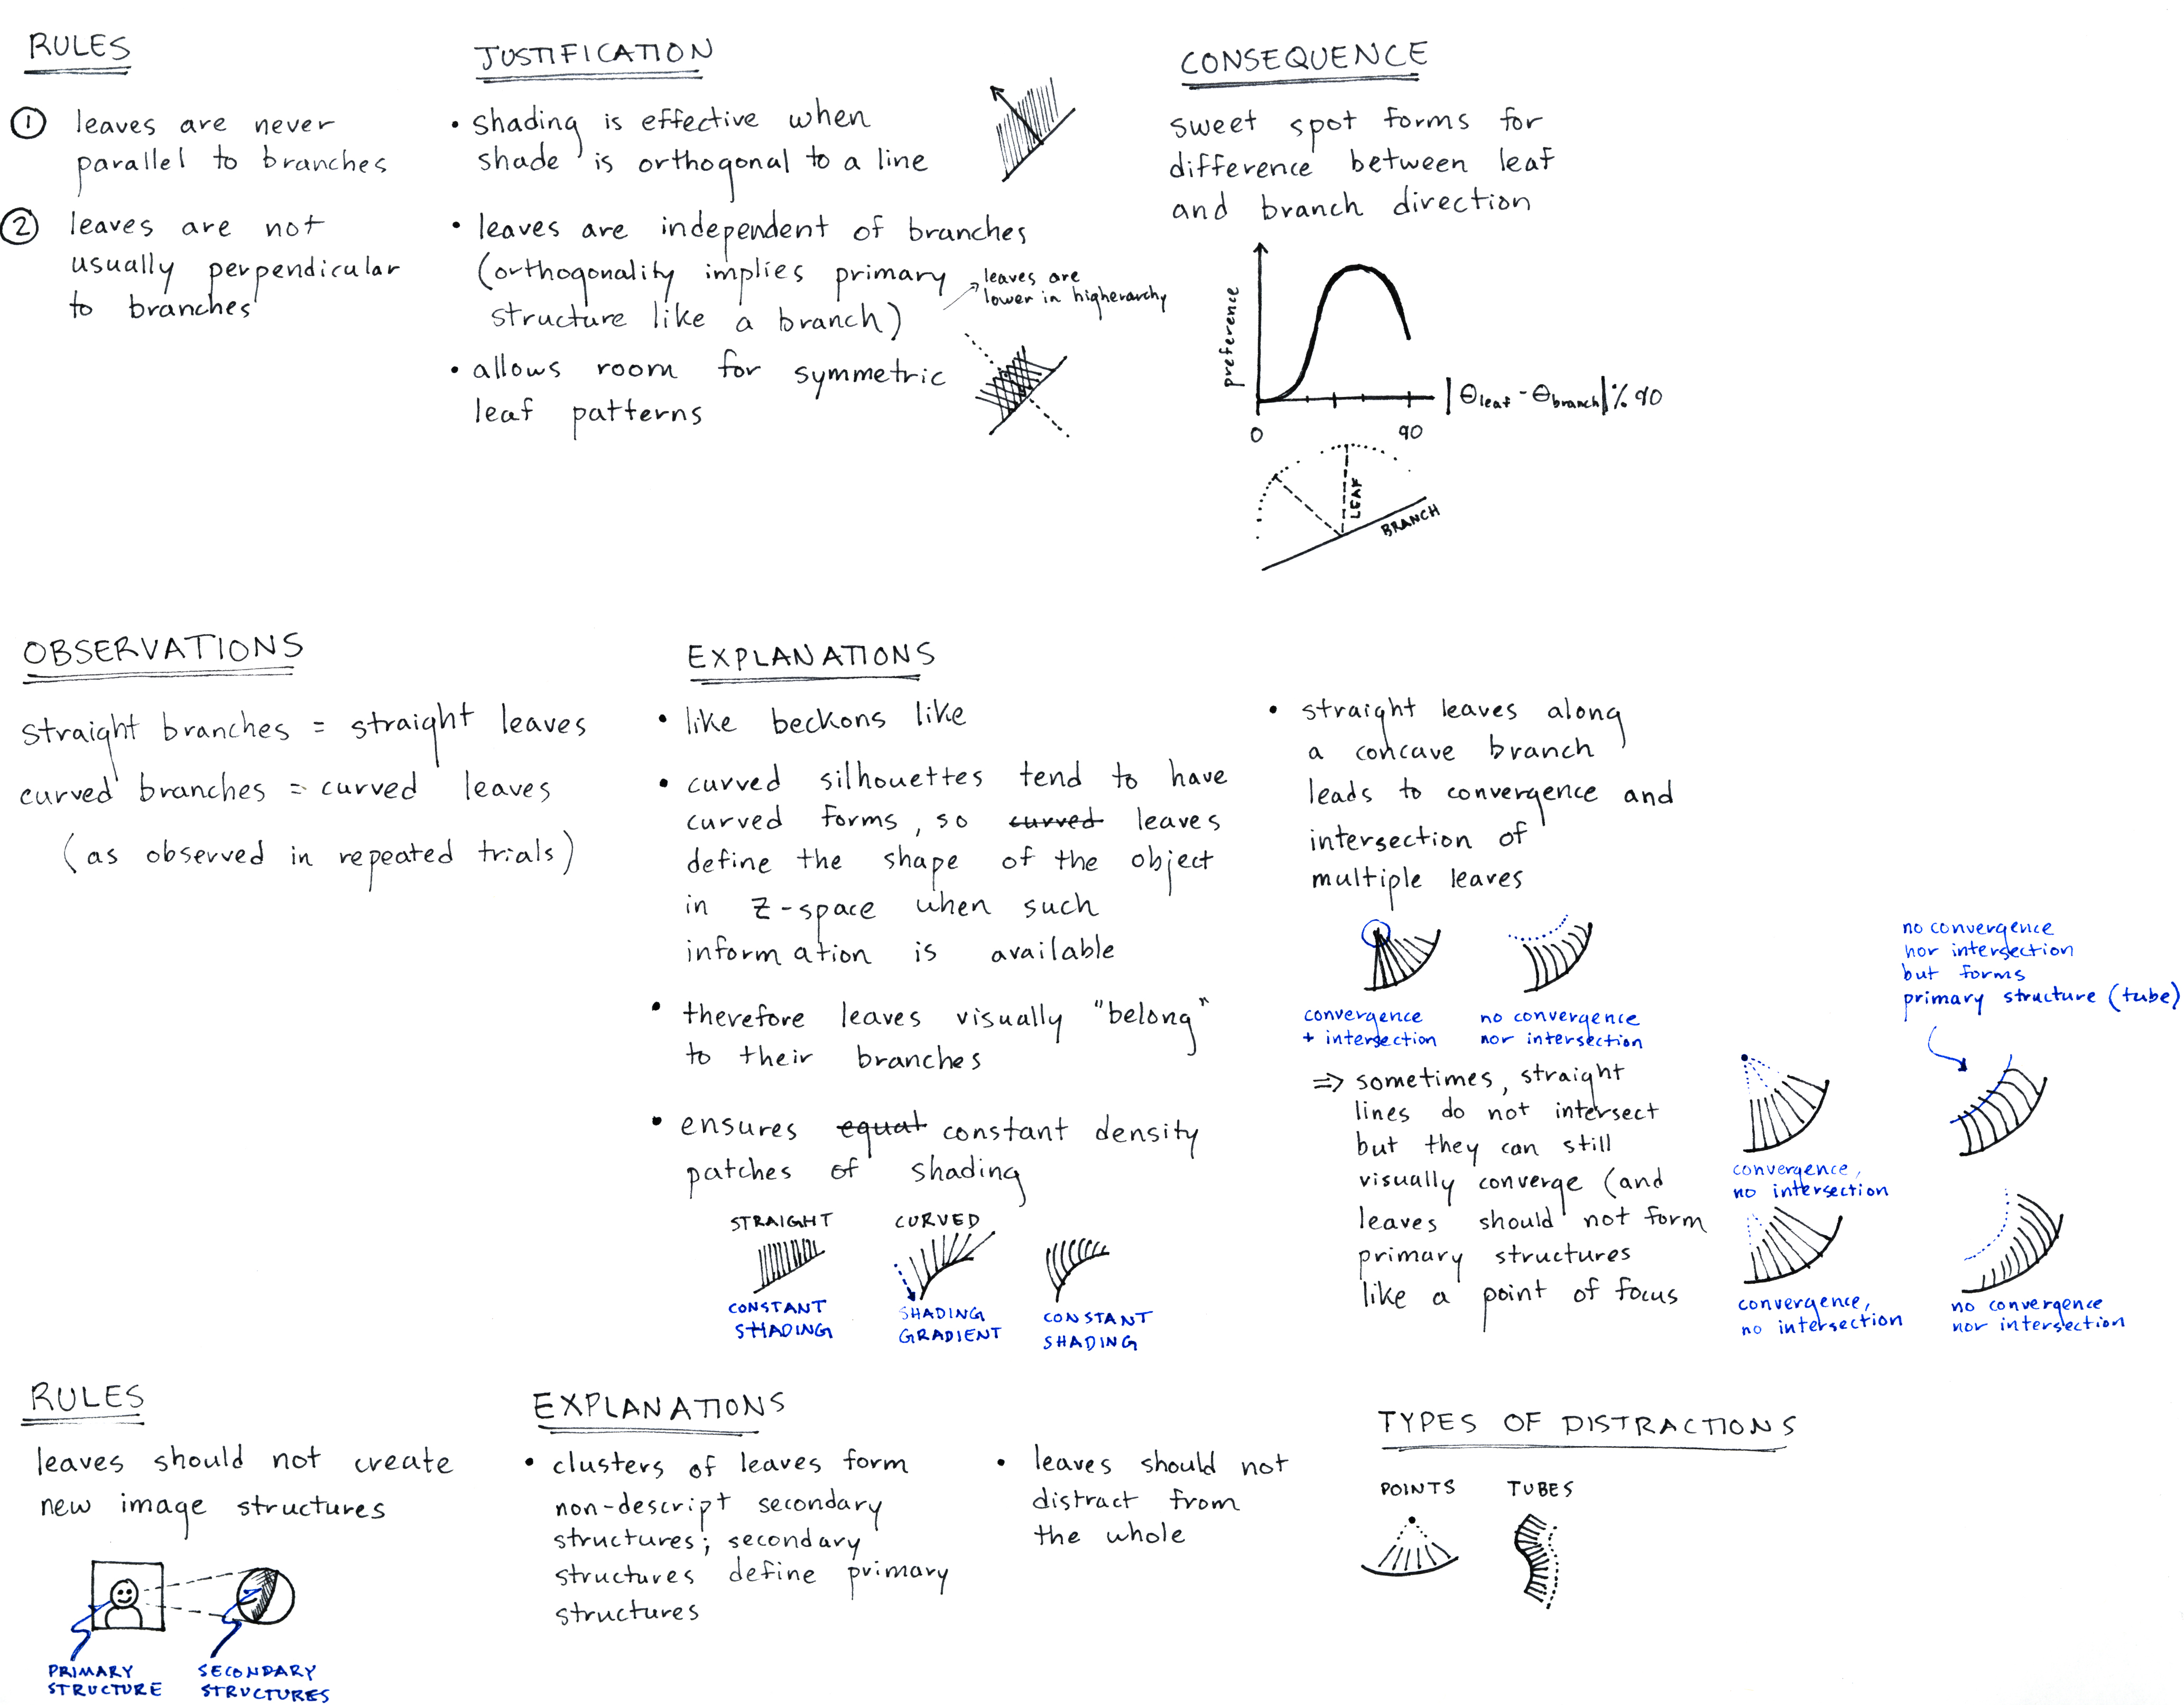 RULES
① leaves are never
parallel to branches
② leaves are not
usually perpendicular
to branches
JUSTIFICATION
• shading is effective when
shade is orthogonal to a line
• leaves are independent of branches
(orthogonality implies primary
structure like a branch)
leaves are
lower in higherarchy
• allows room for symmetric
leaf patterns
CONSEQUENCE
sweet spot forms for
difference between leaf
and branch direction
preference
|θleaf - θbranch| % 90
0 90
LEAF
BRANCH
OBSERVATIONS
straight branches = straight leaves
curved branches = curved leaves
(as observed in repeated trials)
EXPLANATIONS
• like beckons like
• curved silhouettes tend to have
curved forms, so curved leaves
define the shape of the object
in z-space when such
information is available
• therefore leaves visually "belong"
to their branches
• ensures equal constant density
patches of shading
STRAIGHT CURVED
CONSTANT
SHADING
SHADING
GRADIENT
CONSTANT
SHADING
• straight leaves along
a concave branch
leads to convergence and
intersection of
multiple leaves
convergence
+ intersection
no convergence
nor intersection
⇒ sometimes, straight
lines do not intersect
but they can still
visually converge (and
leaves should not form
primary structures
like a point of focus
no convergence
nor intersection
but forms
primary structure (tube)
convergence,
no intersection
convergence,
no intersection
no convergence
nor intersection
RULES
leaves should not create
new image structures
PRIMARY
STRUCTURE
SECONDARY
STRUCTURES
EXPLANATIONS
• clusters of leaves form
non-descript secondary
structures; secondary
structures define primary
structures
• leaves should not
distract from
the whole
TYPES OF DISTRACTIONS
POINTS TUBES